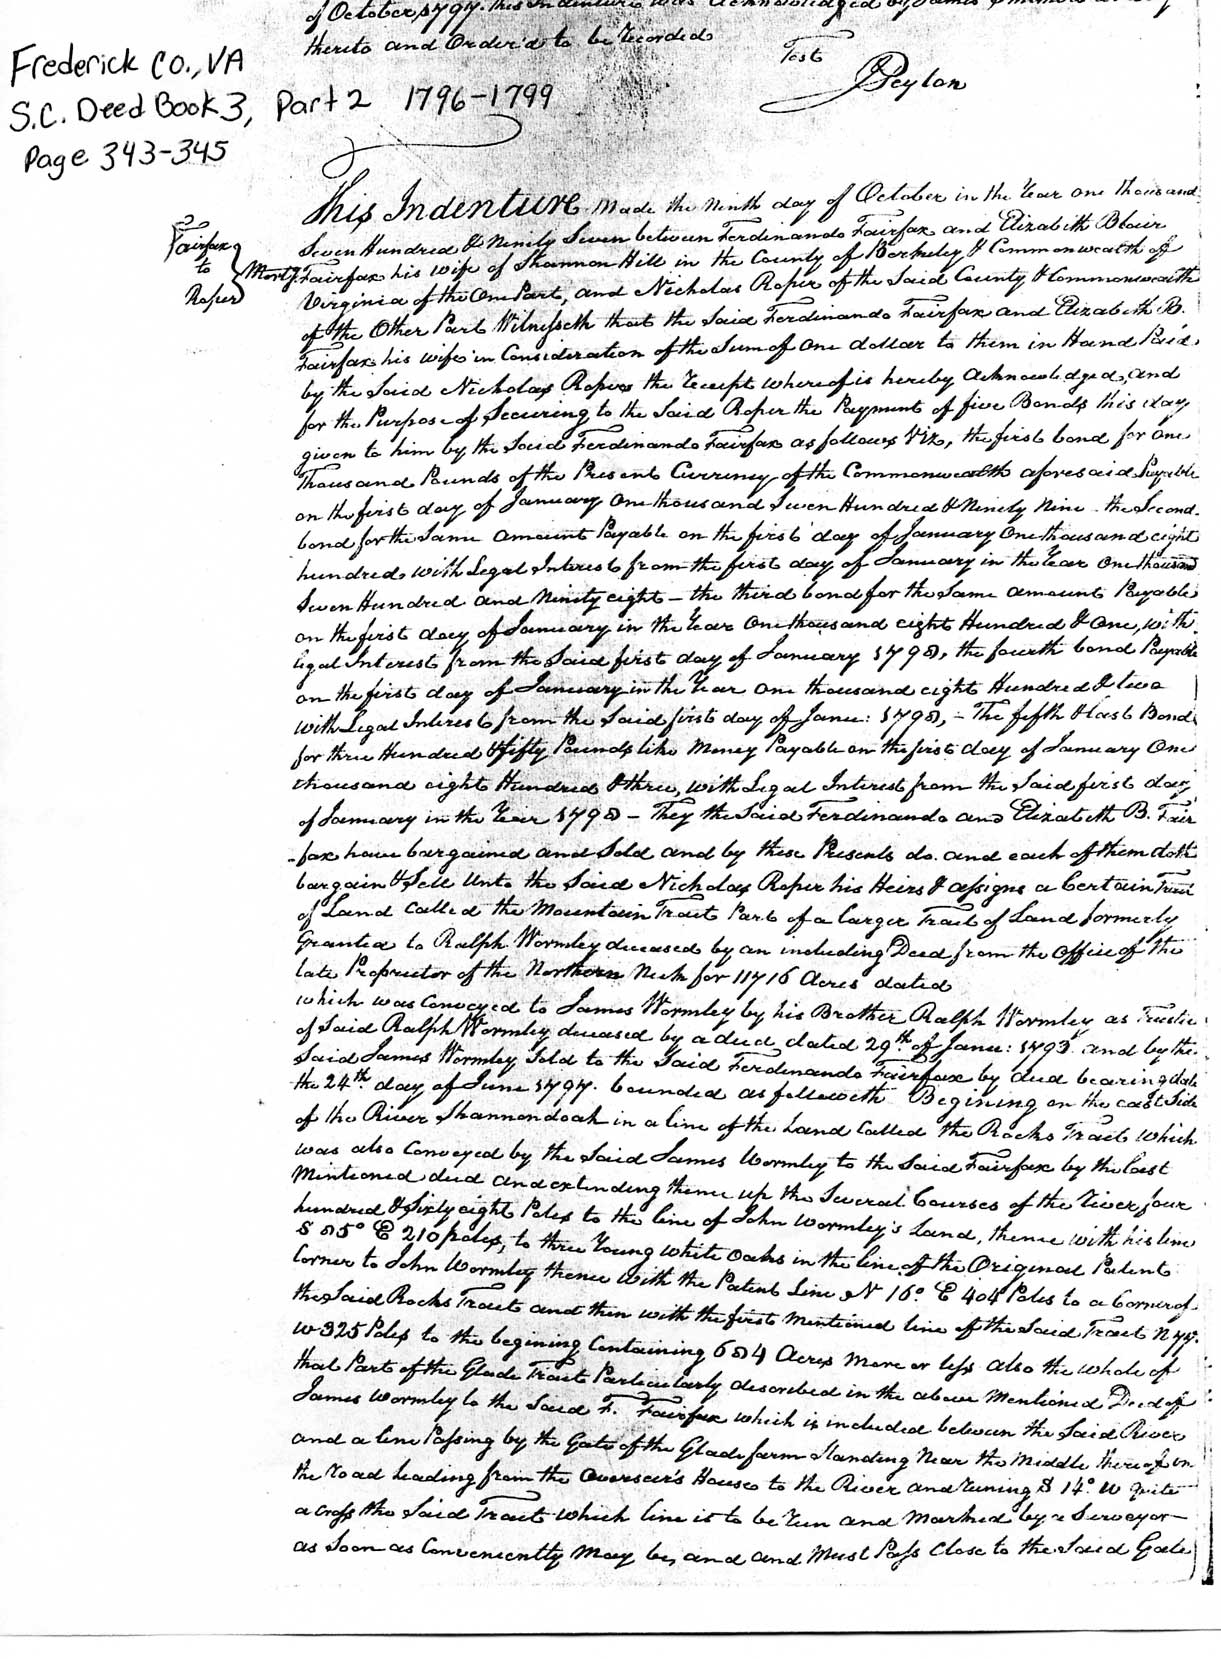 of October 1797. this Indenture was acknowledged by James
thereto and Order'd to be Recorded
Test
Peyton
Frederick Co., VA
S.C. Deed Book 3, Part 2 1796-1799
Page 343-345
Fairfax
to
Roper
Mortg.
This Indenture Made the Ninth day of October in the Year one thousand
Seven Hundred & Ninety Seven between Ferdinando Fairfax and Elizabeth Blair
Fairfax his wife of Shannon Hill in the County of Berkeley & Commonwealth of
Virginia of the One Part, and Nicholas Roper of the Said County & Commonwealth
of the Other Part Witnesseth that the Said Ferdinando Fairfax and Elizabeth B.
Fairfax his wife in Consideration of the Sum of One dollar to them in Hand Paid
by the Said Nicholas Roper the Receipt whereof is hereby Acknowledged, and
for the Purpose of Securing to the Said Roper the Payment of five Bonds this day
given to him by the Said Ferdinando Fairfax as follows Viz, the first bond for one
Thousand Pounds of the Present Currency of the Commonwealth aforesaid Payable
on the first day of January One thousand Seven Hundred & Ninety Nine - the Second
bond for the Same amount Payable on the first day of January One thousand eight
hundred, with Legal Interest from the first day of January in the Year One thousand
Seven Hundred and Ninety eight - the third bond for the Same amount Payable
on the first day of January in the Year One thousand eight Hundred & One, with
legal Interest from the Said first day of January 1798, the fourth bond Payable
on the first day of January in the Year one thousand eight Hundred & two
with Legal Interest from the Said first day of Janu: 1798, - The fifth & last Bond
for three Hundred & fifty Pounds like Money Payable on the first day of January One
thousand eight Hundred & three, with Legal Interest from the Said first day
of January in the Year 1798 - They the Said Ferdinando and Elizabeth B. Fair
-fax have bargained and Sold and by these Presents do. and each of them doth
bargain & Sell Unto the Said Nicholas Roper his Heirs & assigns a Certain Tract
of Land Called the Mountain Tract Part of a larger Tract of Land formerly
Granted to Ralph Wormley deceased by an including Deed from the Office of the
late Proprietor of the Northern Neck for 11716 Acres dated
which was Conveyed to James Wormley by his Brother Ralph Wormley as Trustee
of Said Ralph Wormley deceased by a deed dated 29th of Janu: 1793 and by the
Said James Wormley Sold to the Said Ferdinando Fairfax by deed bearing date
the 24th day of June 1797. bounded as followeth Begining on the east Side
of the River Shannondoah in a line of the Land Called the Rocks Tract which
was also Conveyed by the Said James Wormley to the Said Fairfax by the last
Mentioned deed and extending thence up the Several Courses of the River four
hundred & Sixty eight Poles to the line of John Wormley's Land, thence with his line
S 85° E 210 poles, to three Young white Oaks in the line of the Original Patent
Corner to John Wormley thence with the Patent Line N 16° E 404 Poles to a Corner of
the Said Rocks Tract and then with the first Mentioned line of the Said Tract N 77.
W 325 Poles to the begining Containing 684 Acres more or less also the whole of
that Part of the Glade Tract Particularly described in the above Mentioned Deed of
James Wormley to the Said F. Fairfax which is included between the Said River
and a line Passing by the Gate of the Glade farm Standing Near the Middle thereof in
the Road Leading from the Overseer's House to the River and runing S 14° W quite
across the Said Tract which line is to be Run and Marked by a Surveyor
as Soon as Conveniently May be, and and Must Pass Close to the Said Gate